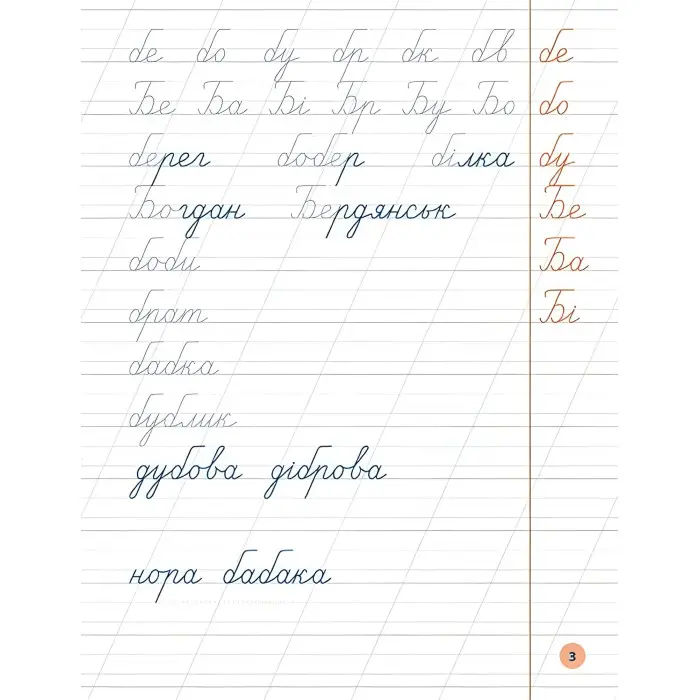 бе бо бу бр бк бв бе
Бе Ба Бі Бр Бу Бо бо
берег бобер білка бу
Богдан Бердянськ Бе
боби Ба
брат Бі
бабка
бублик
дубова діброва
нора бабака
3